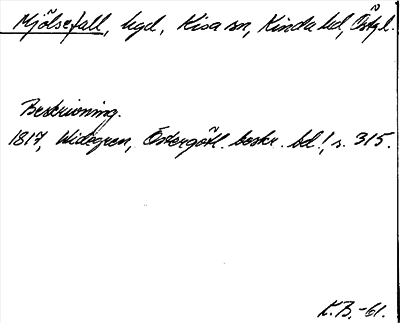 Mjölsefall, hgd, Kisa sn, Kinda hd, Östgl.
Beskrivning.
1817, Widegren, Östergötl. beskr. bd 1, s. 315.
K.B.-61.